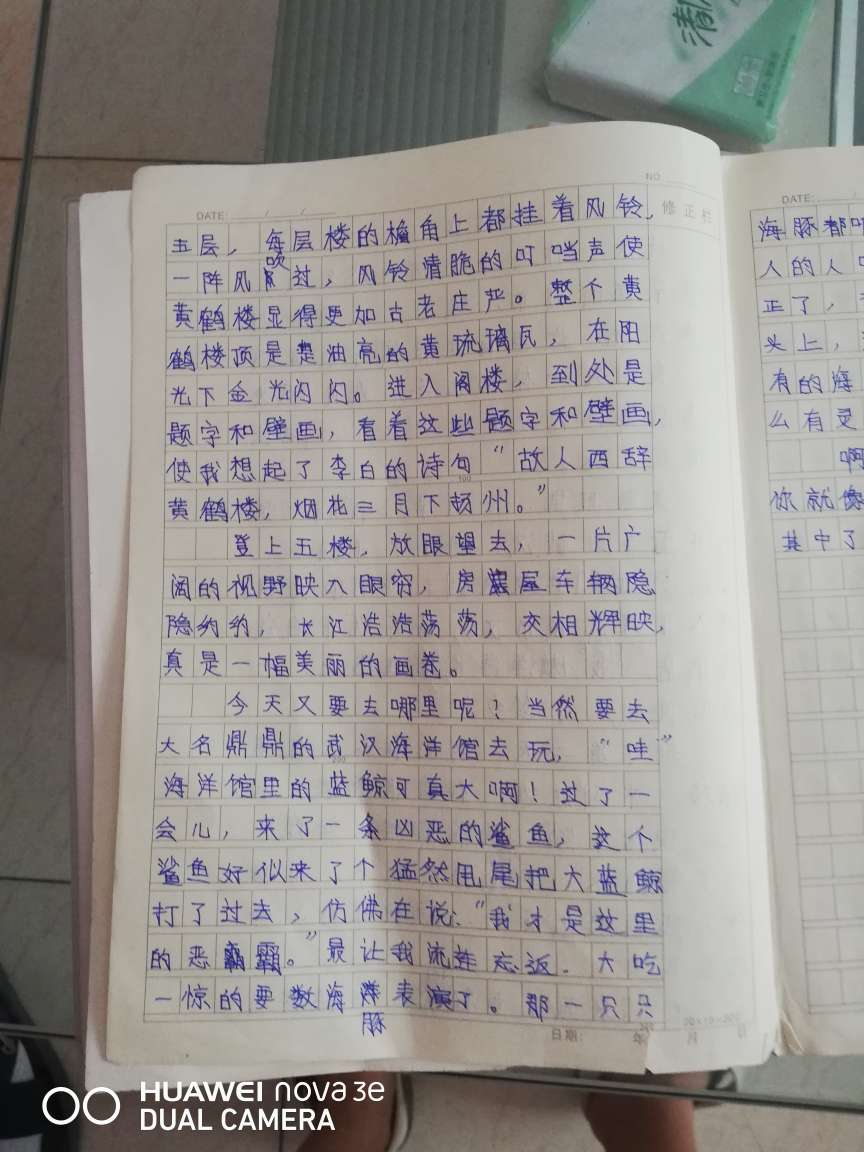 NO
DATE: / /
修正栏
五层，每层楼的檐角上都挂着风铃，
一阵风吹过，风铃清脆的叮当声使
黄鹤楼显得更加古老庄严。整个黄
鹤楼顶是是油亮的黄琉璃瓦，在阳
光下金光闪闪。进入阁楼，到处是
题字和壁画，看着这些题字和壁画，
使我想起了李白的诗句“故人西辞
黄鹤楼，烟花三月下扬州。”
登上五楼，放眼望去，一片广
阔的视野映入眼帘，房屋车辆隐
隐约约，长江浩浩荡荡，交相辉映，
真是一幅美丽的画卷。
今天又要去哪里呢？当然要去
大名鼎鼎的武汉海洋馆去玩，“哇”
海洋馆里的蓝鲸可真大啊！过了一
会儿，来了一条凶恶的鲨鱼，这个
鲨鱼好似来了个猛然甩尾把大蓝鲸
打了过去，仿佛在说：“我才是这里
的恶霸。”最让我流连忘返．大吃
一惊的要数海豚表演了。那一只只
日期： 年 月
DATE:
海豚都
人的人
正了，
头上，
有的海
么有灵
啊
你就像
其中了
清
HUAWEI nova 3e
DUAL CAMERA